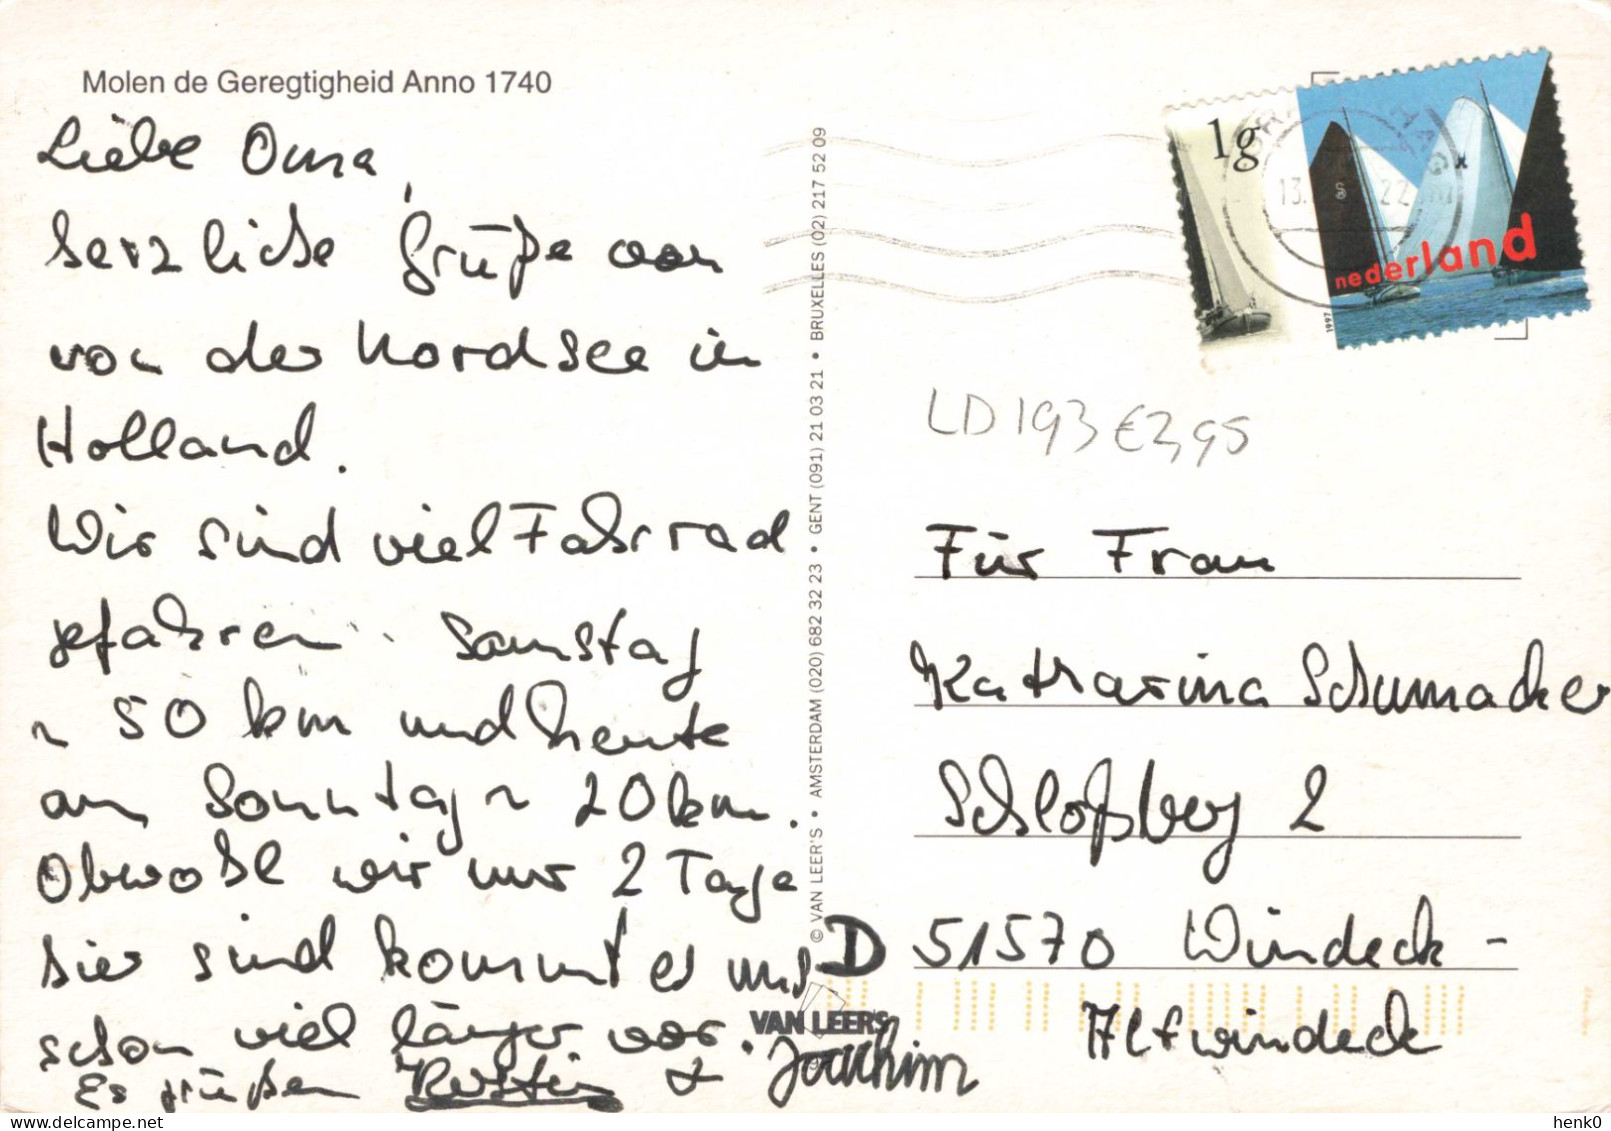 Molen de Geregtigheid Anno 1740
Liebe Oma,
herzliche Grüße von
von der Nordsee in
Holland.
Wir sind viel Fahrrad
gefahren. Samstag
~ 50 km und heute
am Sonntag ~ 20 km.
Obwohl wir nur 2 Tage
hier sind kommt es uns
schon viel länger vor.
Es grüßen & Joachim
© VAN LEER'S • AMSTERDAM (020) 682 32 23 • GENT (091) 21 03 21 • BRUXELLES (02) 217 52 09
VAN LEER'S
1g
nederland
1997
LD193 €2,95
Für Frau
Katharina Schumacher
Schloßberg 2
D 51570 Windeck -
Altwindeck
delcampe.net
henk0